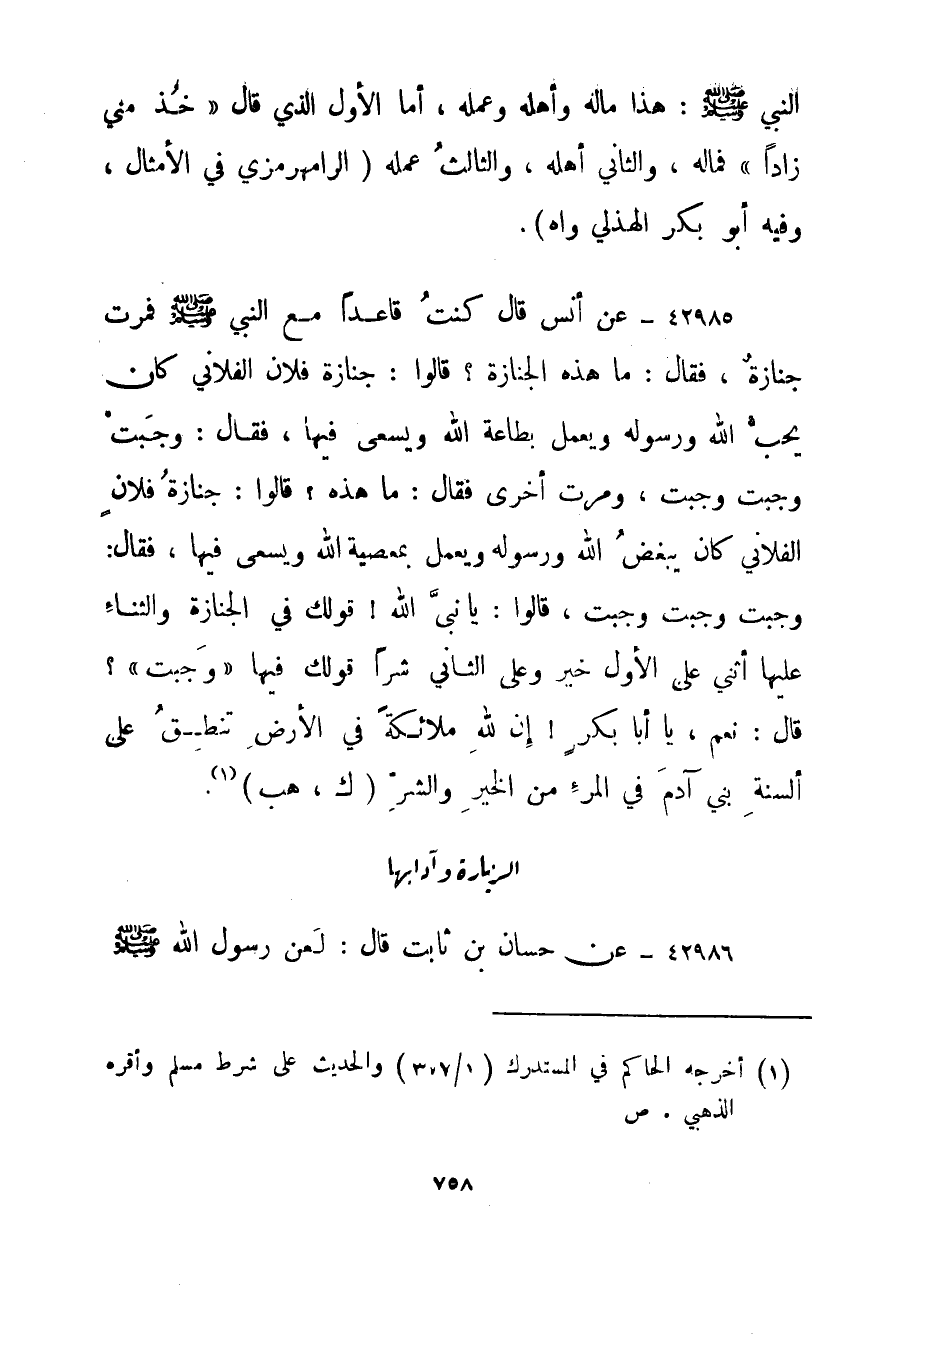 النبي ﷺ : هذا ماله وأهله وعمله ، أما الأول الذي قال « خُذ مني
زاداً » فماله ، والثاني أهله ، والثالثُ عمله ( الرامهرمزي في الأمثال ،
وفيه أبو بكر الهذلي واه) .
٤٢٩٨٥ – عن أنس قال كنتُ قاعداً مع النبي ﷺ فمرت
جنازةٌ ، فقال : ما هذه الجنازة ؟ قالوا : جنازة فلان الفلاني كان
يحبُّ الله ورسوله ويعمل بطاعة الله ويسعى فيها ، فقال : وجَبتْ
وجبت وجبت ، ومرت أخرى فقال : ما هذه ؟ قالوا : جنازةُ فلانٍ
الفلاني كان يبغضُ الله ورسوله ويعمل بمعصية الله ويسعى فيها ، فقال:
وجبت وجبت وجبت ، قالوا : يا نبيَّ الله ! قولك في الجنازة والثناءِ
عليها أثني على الأول خير وعلى الثاني شراً قولك فيها « وَجبت » ؟
قال : نعم ، يا أبا بكرٍ ! إن للهِ ملائكةً في الأرضِ تنطِقُ على
ألسنةِ بني آدمَ في المرءِ من الخيرِ والشرِّ ( ك ، هب ) (١).
الزيارة وآدابها
٤٢٩٨٦ – عن حسان بن ثابت قال : لَعن رسول الله ﷺ
(١) أخرجه الحاكم في المستدرك ( ٣٠٧/١ ) والحديث على شرط مسلم وأقره
الذهبي . ص
٧٥٨